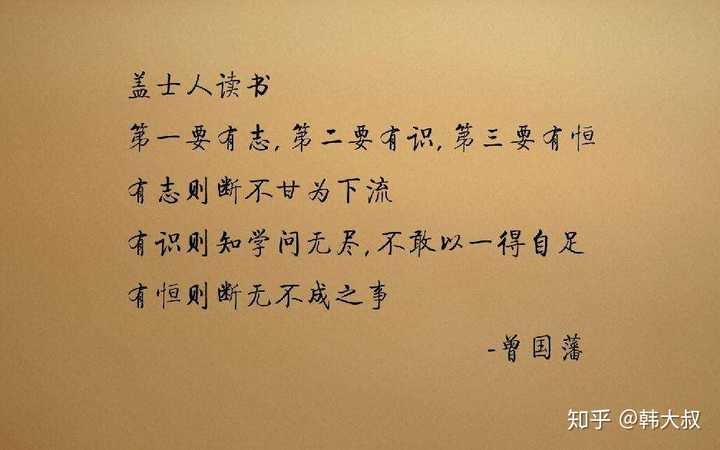 盖士人读书
第一要有志,第二要有识,第三要有恒
有志则断不甘为下流
有识则知学问无尽,不敢以一得自足
有恒则断无不成之事
-曾国藩
知乎 @韩大叔